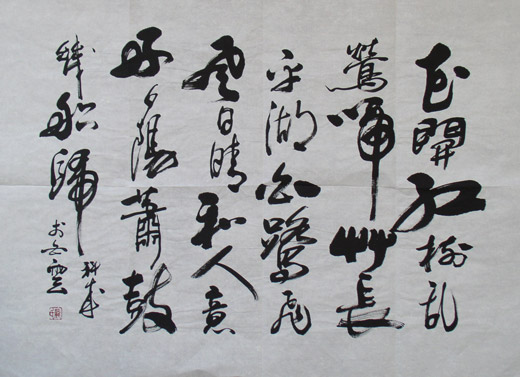 花開红樹乱
鶯啼艸長
平湖白鷺飛
風日晴和人意
好夕陽蕭鼓
幾船歸